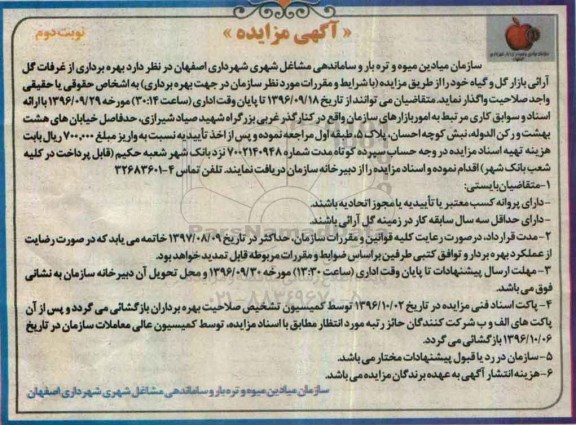 « آگهی مزایده »
نوبت دوم
سازمان میادین میوه و تره بار و ساماندهی مشاغل شهری شهرداری اصفهان در نظر دارد بهره برداری از غرفات گل
آرائی بازار گل و گیاه خود را از طریق مزایده (با شرایط و مقررات مورد نظر سازمان در جهت بهره برداری) به اشخاص حقوقی یا حقیقی
واجد صلاحیت واگذار نماید. متقاضیان می توانند از تاریخ ۱۳۹۶/۰۹/۱۸ تا پایان وقت اداری (ساعت ۱۴:۳۰) مورخه ۱۳۹۶/۰۹/۲۹ با ارائه
اسناد و سوابق کاری مرتبط به امور بازارهای سازمان واقع در کنار گذر غربی بزرگراه شهید صیاد شیرازی، حدفاصل خیابان های هشت
بهشت و رکن الدوله، نبش کوچه احسان، پلاک ۵، طبقه اول مراجعه نموده و پس از اخذ تأییدیه نسبت به واریز مبلغ ۷۰۰،۰۰۰ ریال بابت
هزینه تهیه اسناد مزایده در وجه حساب سپرده کوتاه مدت شماره ۷۰۰۲۱۴۰۹۴۸ نزد بانک شهر شعبه حکیم (قابل پرداخت در کلیه
شعب بانک شهر) اقدام نموده و اسناد مزایده را از دبیرخانه سازمان دریافت نمایند. تلفن تماس ۴-۳۲۶۸۳۶۰۱
۱-متقاضیان بایستی:
-دارای پروانه کسب معتبر یا تأییدیه یا مجوز اتحادیه باشند.
-دارای حداقل سه سال سابقه کار در زمینه گل آرائی باشند.
۲-مدت قرارداد، در صورت رعایت کلیه قوانین و مقررات سازمان، حداکثر در تاریخ ۱۳۹۷/۰۸/۰۹ خاتمه می یابد که در صورت رضایت
از عملکرد بهره بردار و توافق کتبی طرفین بر اساس ضوابط و مقررات مربوطه قابل تمدید خواهد بود.
۳-مهلت ارسال پیشنهادات تا پایان وقت اداری (ساعت ۱۳:۳۰) مورخه ۱۳۹۶/۰۹/۳۰ و محل تحویل آن دبیرخانه سازمان به نشانی
فوق می باشد.
۴- پاکت اسناد فنی مزایده در تاریخ ۱۳۹۶/۱۰/۰۲ توسط کمیسیون تشخیص صلاحیت بهره برداران بازگشائی می گردد و پس از آن
پاکت های الف و ب شرکت کنندگان حائز رتبه مورد انتظار مطابق با اسناد مزایده، توسط کمیسیون عالی معاملات سازمان در تاریخ
۱۳۹۶/۱۰/۰۶ بازگشائی می گردد.
۵-سازمان در رد یا قبول پیشنهادات مختار می باشد.
۶-هزینه انتشار آگهی به عهده برندگان مزایده می باشد.
سازمان میادین میوه و تره بار و ساماندهی مشاغل شهری شهرداری اصفهان